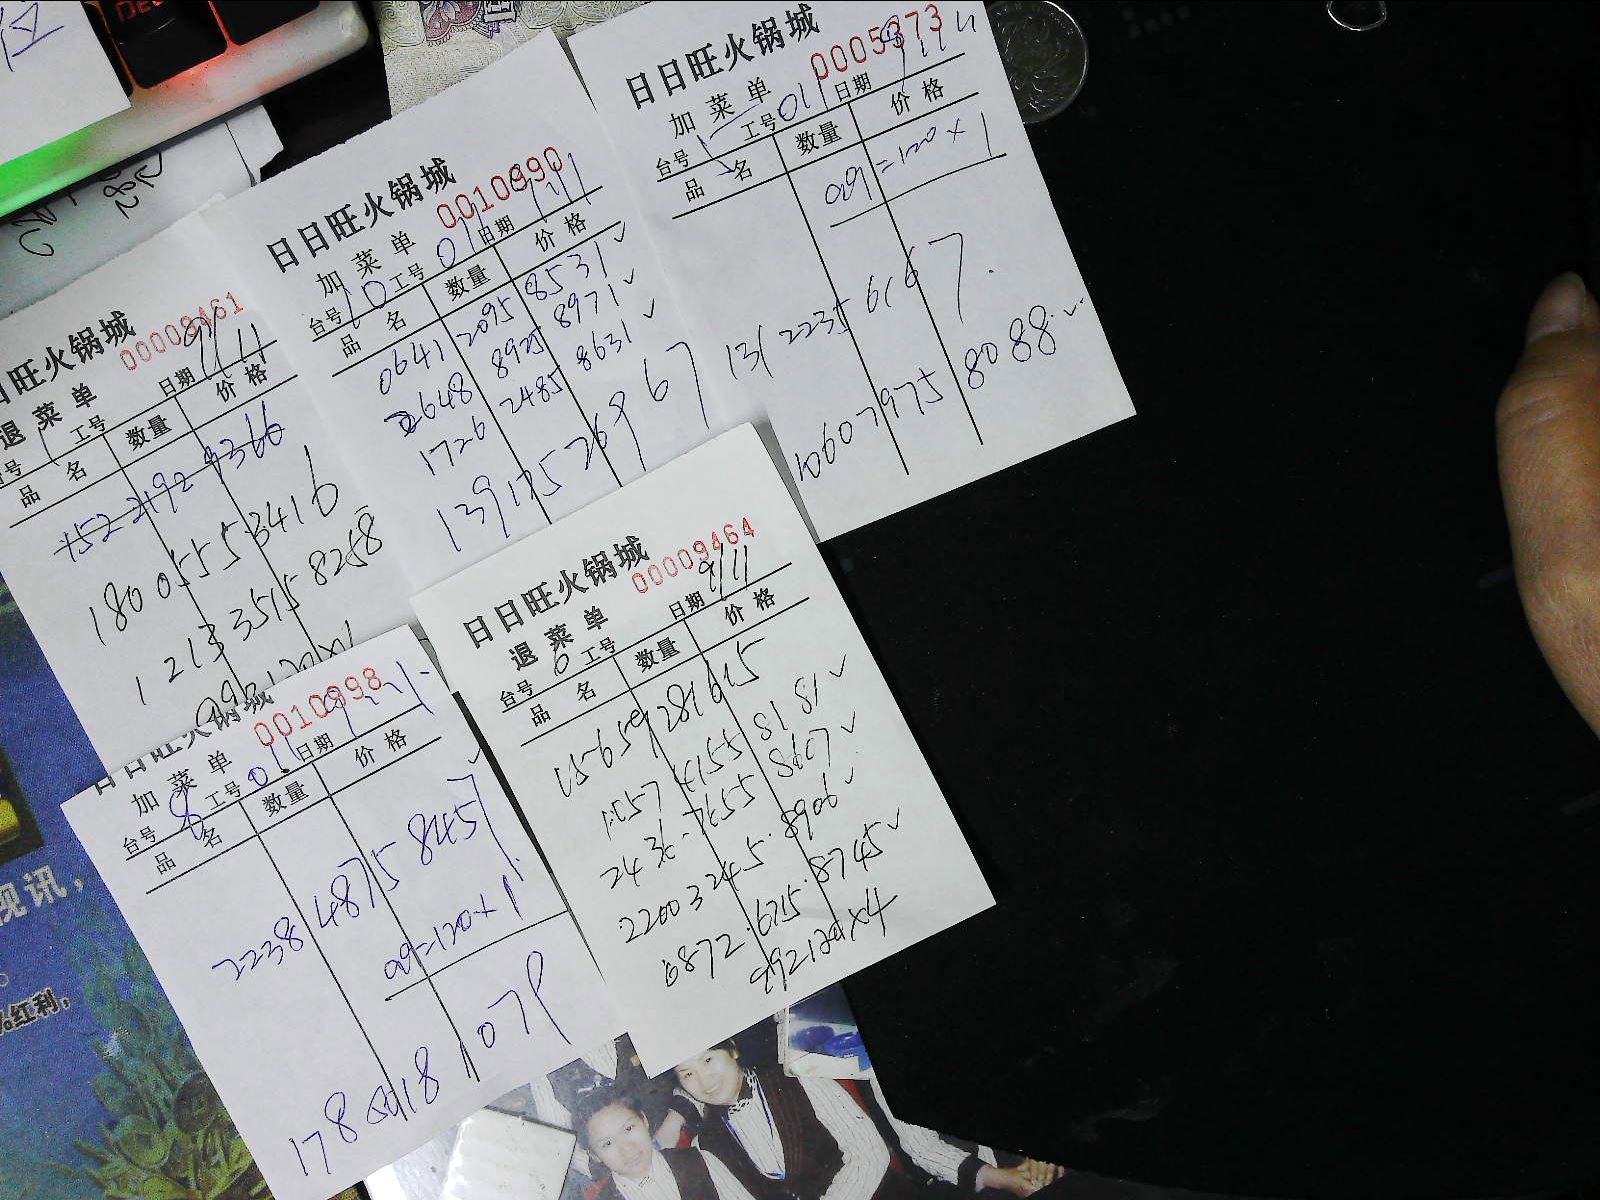 位
DEL
日日旺火锅城
00009461
退菜单
台号 1 工号 日期 9/11
品名 数量 价格
152 2192 9366
180 0555 3416
1213 3515 8258
日日旺火锅城
0010990
加菜单
台号 10 工号 01 日期 9.11
品名 数量 价格
0641 2095 8531 ✓
2648 8925 8971 ✓
1726 2485 8631 ✓
139175 26967
日日旺火锅城
0005373
加菜单
工号 01 日期 9.11
台号
品名 数量 价格
09=120×1
131 2235 6167
10607975 8088 ✓
日日旺火锅城
0010998
加菜单
台号 8 工号 01 日期
品名 数量 价格
2238 4875 8457 ✓
09=120×1
178 1079
日日旺火锅城
00009464
退菜单
台号 6 工号 日期 9/11
品名 数量 价格
15-659 281615
1557 4155 8181 ✓
2436 7455 8607 ✓
2200 3245 8906 ✓
6872 6715 8745 ✓
视讯，
%红利，